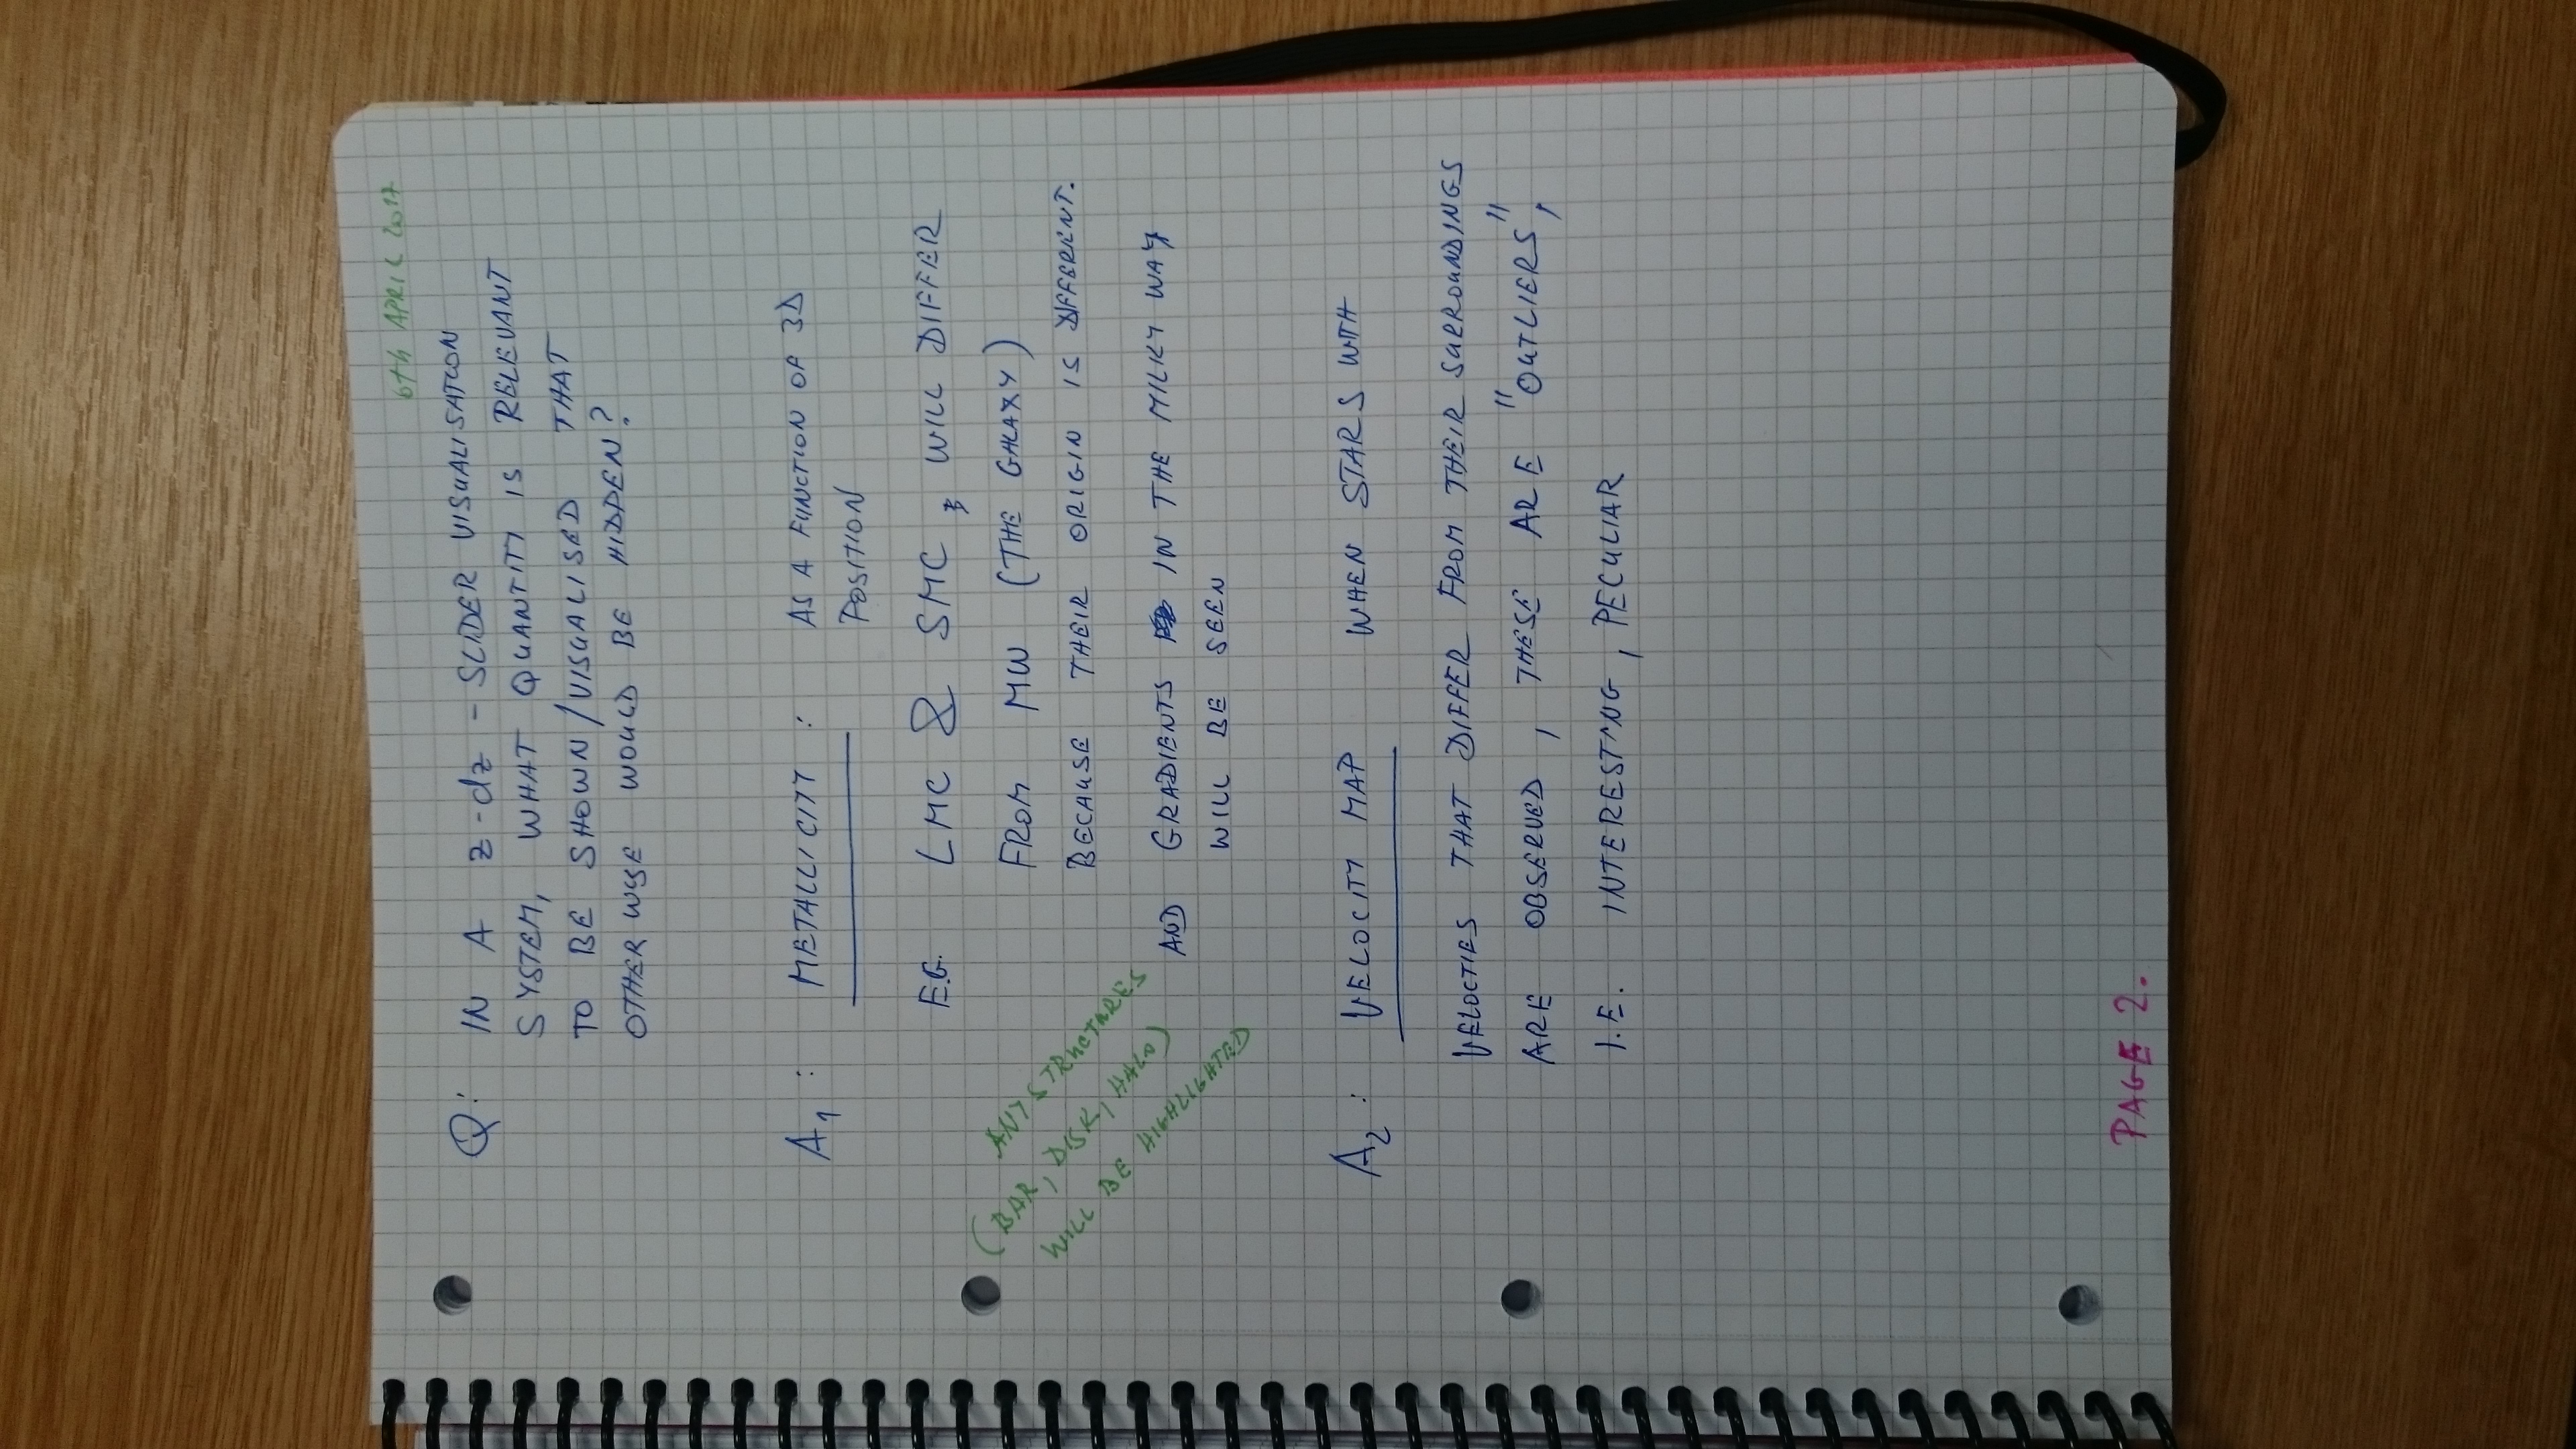 6th APRIL 2017
Q: IN A z-dz-SLIDER VISUALISATION
SYSTEM, WHAT QUANTITY IS RELEVANT
TO BE SHOWN/VISUALISED THAT
OTHER WISE WOULD BE HIDDEN?
A1: METALLICITY: AS A FUNCTION OF 3D
POSITION
E.G. LMC & SMC, WILL DIFFER
FROM MW (THE GALAXY)
BECAUSE THEIR ORIGIN IS DIFFERENT.
AND GRADIENTS IN THE MILKY WAY
WILL BE SEEN
ANY STRUCTURES
(BAR, DISK, HALO)
WILL BE HIGHLIGHTED
A2: VELOCITY MAP WHEN STARS WITH
VELOCITIES THAT DIFFER FROM THEIR SURROUNDINGS
ARE OBSERVED, THESE ARE "OUTLIERS",
I.E. INTERESTING, PECULIAR
PAGE 2.